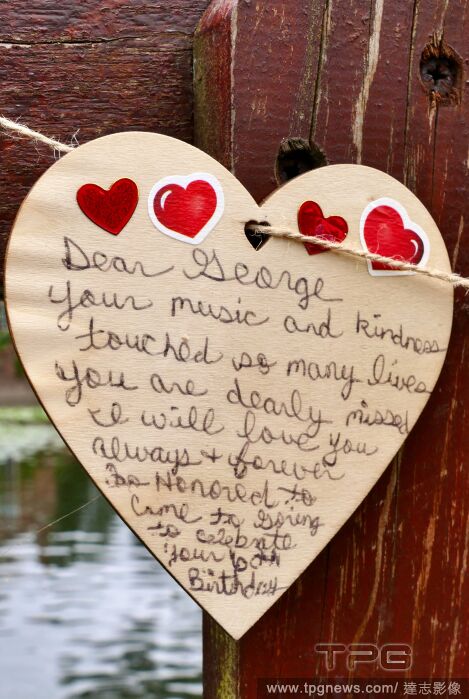 Dear George
Your music and kindness
touched so many lives
You are dearly missed
I will love you
always + forever
So Honored to
Come to Goring
to celebrate
Your 60th
Birthday
TPG
www.tpgnews.com/達志影像